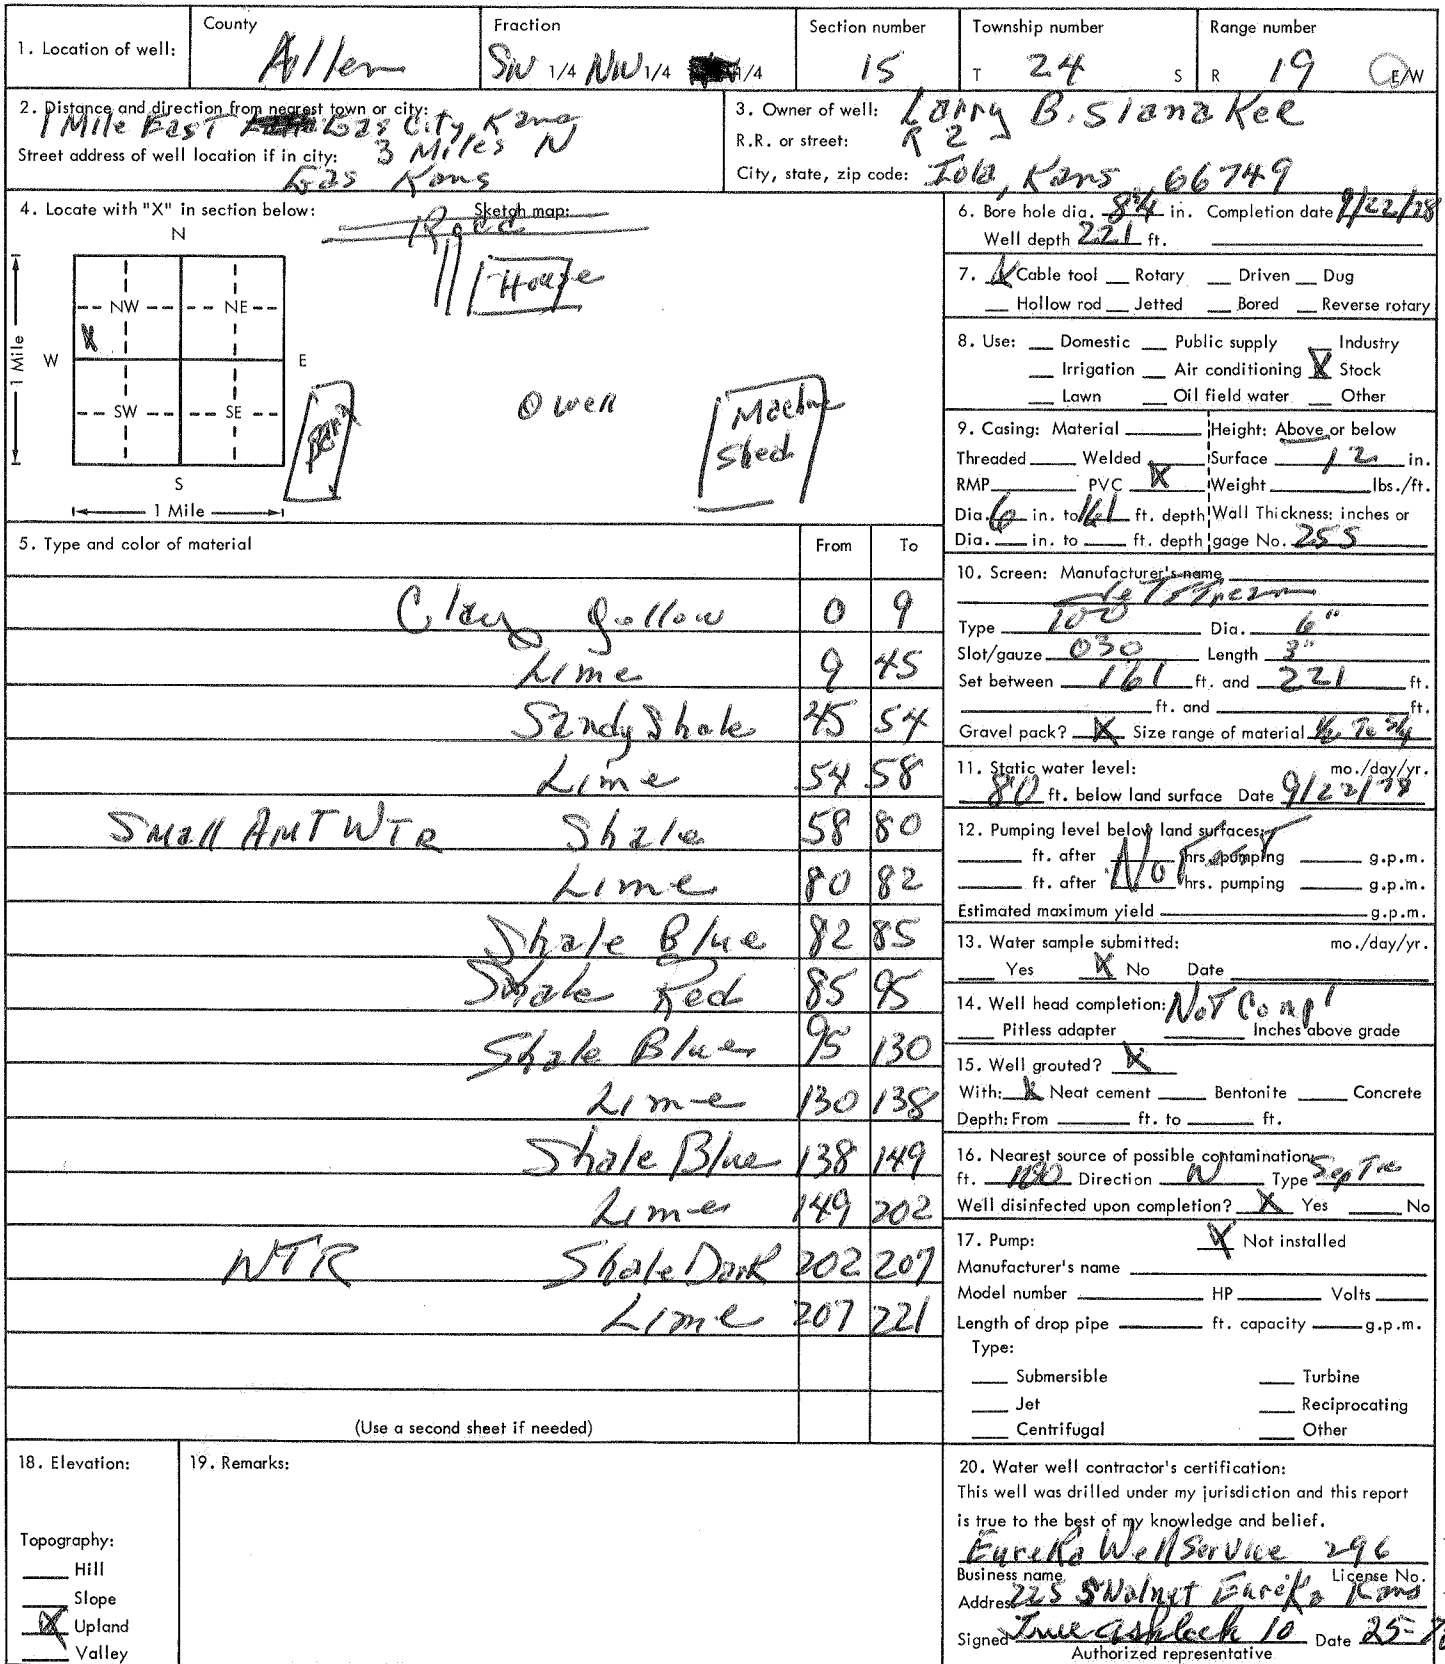 County Fraction Section number Township number Range number
1. Location of well: Allen SW 1/4 NW 1/4 1/4 15 T 24 S R 19 E/W
2. Distance and direction from nearest town or city:
1 Mile East Gas City, Kans
Street address of well location if in city: 3 Miles N
Gas Kans
3. Owner of well: Larry B.
R.R. or street: R 2
City, state, zip code: Iola, Kans 66749
4. Locate with "X" in section below: Sketch map:
N
Road
House
NW NE
X
W E
1 Mile
SW SE
Barn
O Well
Machine
Shed
S
1 Mile
5. Type and color of material From To
Clay yellow 0 9
Lime 9 45
Sandy Shale 45 54
Lime 54 58
Small AMT WTR Shale 58 80
Lime 80 82
Shale Blue 82 85
Shale Red 85 95
Shale Blue 95 130
Lime 130 138
Shale Blue 138 149
Lime 149 202
WTR Shale Dark 202 207
Lime 207 221
(Use a second sheet if needed)
6. Bore hole dia. in. Completion date 9/22/78
Well depth 221 ft.
7. X Cable tool Rotary Driven Dug
Hollow rod Jetted Bored Reverse rotary
8. Use: Domestic Public supply Industry
Irrigation Air conditioning X Stock
Lawn Oil field water Other
9. Casing: Material Height: Above or below
Threaded Welded Surface 12 in.
RMP PVC X Weight lbs./ft.
Dia. 6 in. to 161 ft. depth Wall Thickness: inches or
Dia. in. to ft. depth gage No. 255
10. Screen: Manufacturer's name
Type Dia. 6"
Slot/gauze 030 Length 3"
Set between 161 ft. and 221 ft.
ft. and ft.
Gravel pack? X Size range of material
11. Static water level: mo./day/yr.
80 ft. below land surface Date 9/22/78
12. Pumping level below land surfaces:
ft. after hrs. pumping g.p.m.
No Test
ft. after hrs. pumping g.p.m.
Estimated maximum yield g.p.m.
13. Water sample submitted: mo./day/yr.
Yes X No Date
14. Well head completion: Not Compl
Pitless adapter Inches above grade
15. Well grouted? X
With: X Neat cement Bentonite Concrete
Depth: From ft. to ft.
16. Nearest source of possible contamination:
ft. Direction N Type Septic
Well disinfected upon completion? X Yes No
17. Pump: X Not installed
Manufacturer's name
Model number HP Volts
Length of drop pipe ft. capacity g.p.m.
Type:
Submersible Turbine
Jet Reciprocating
Centrifugal Other
18. Elevation:
Topography:
Hill
Slope
X Upland
Valley
19. Remarks:
20. Water well contractor's certification:
This well was drilled under my jurisdiction and this report
is true to the best of my knowledge and belief.
Eureka Well Service 296
Business name License No.
Address 225 S Walnut Eureka Kans
Signed 10 Date 25-
Authorized representative